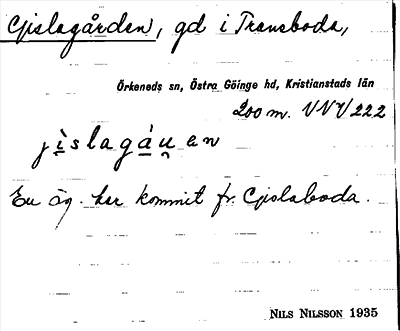 Gislagården, gd i Traneboda,
Örkeneds sn, Östra Göinge hd, Kristianstads län
200 m. VNV/222
jìslagáu̯en
En äg. har kommit fr. Gislaboda.
NILS NILSSON 1935